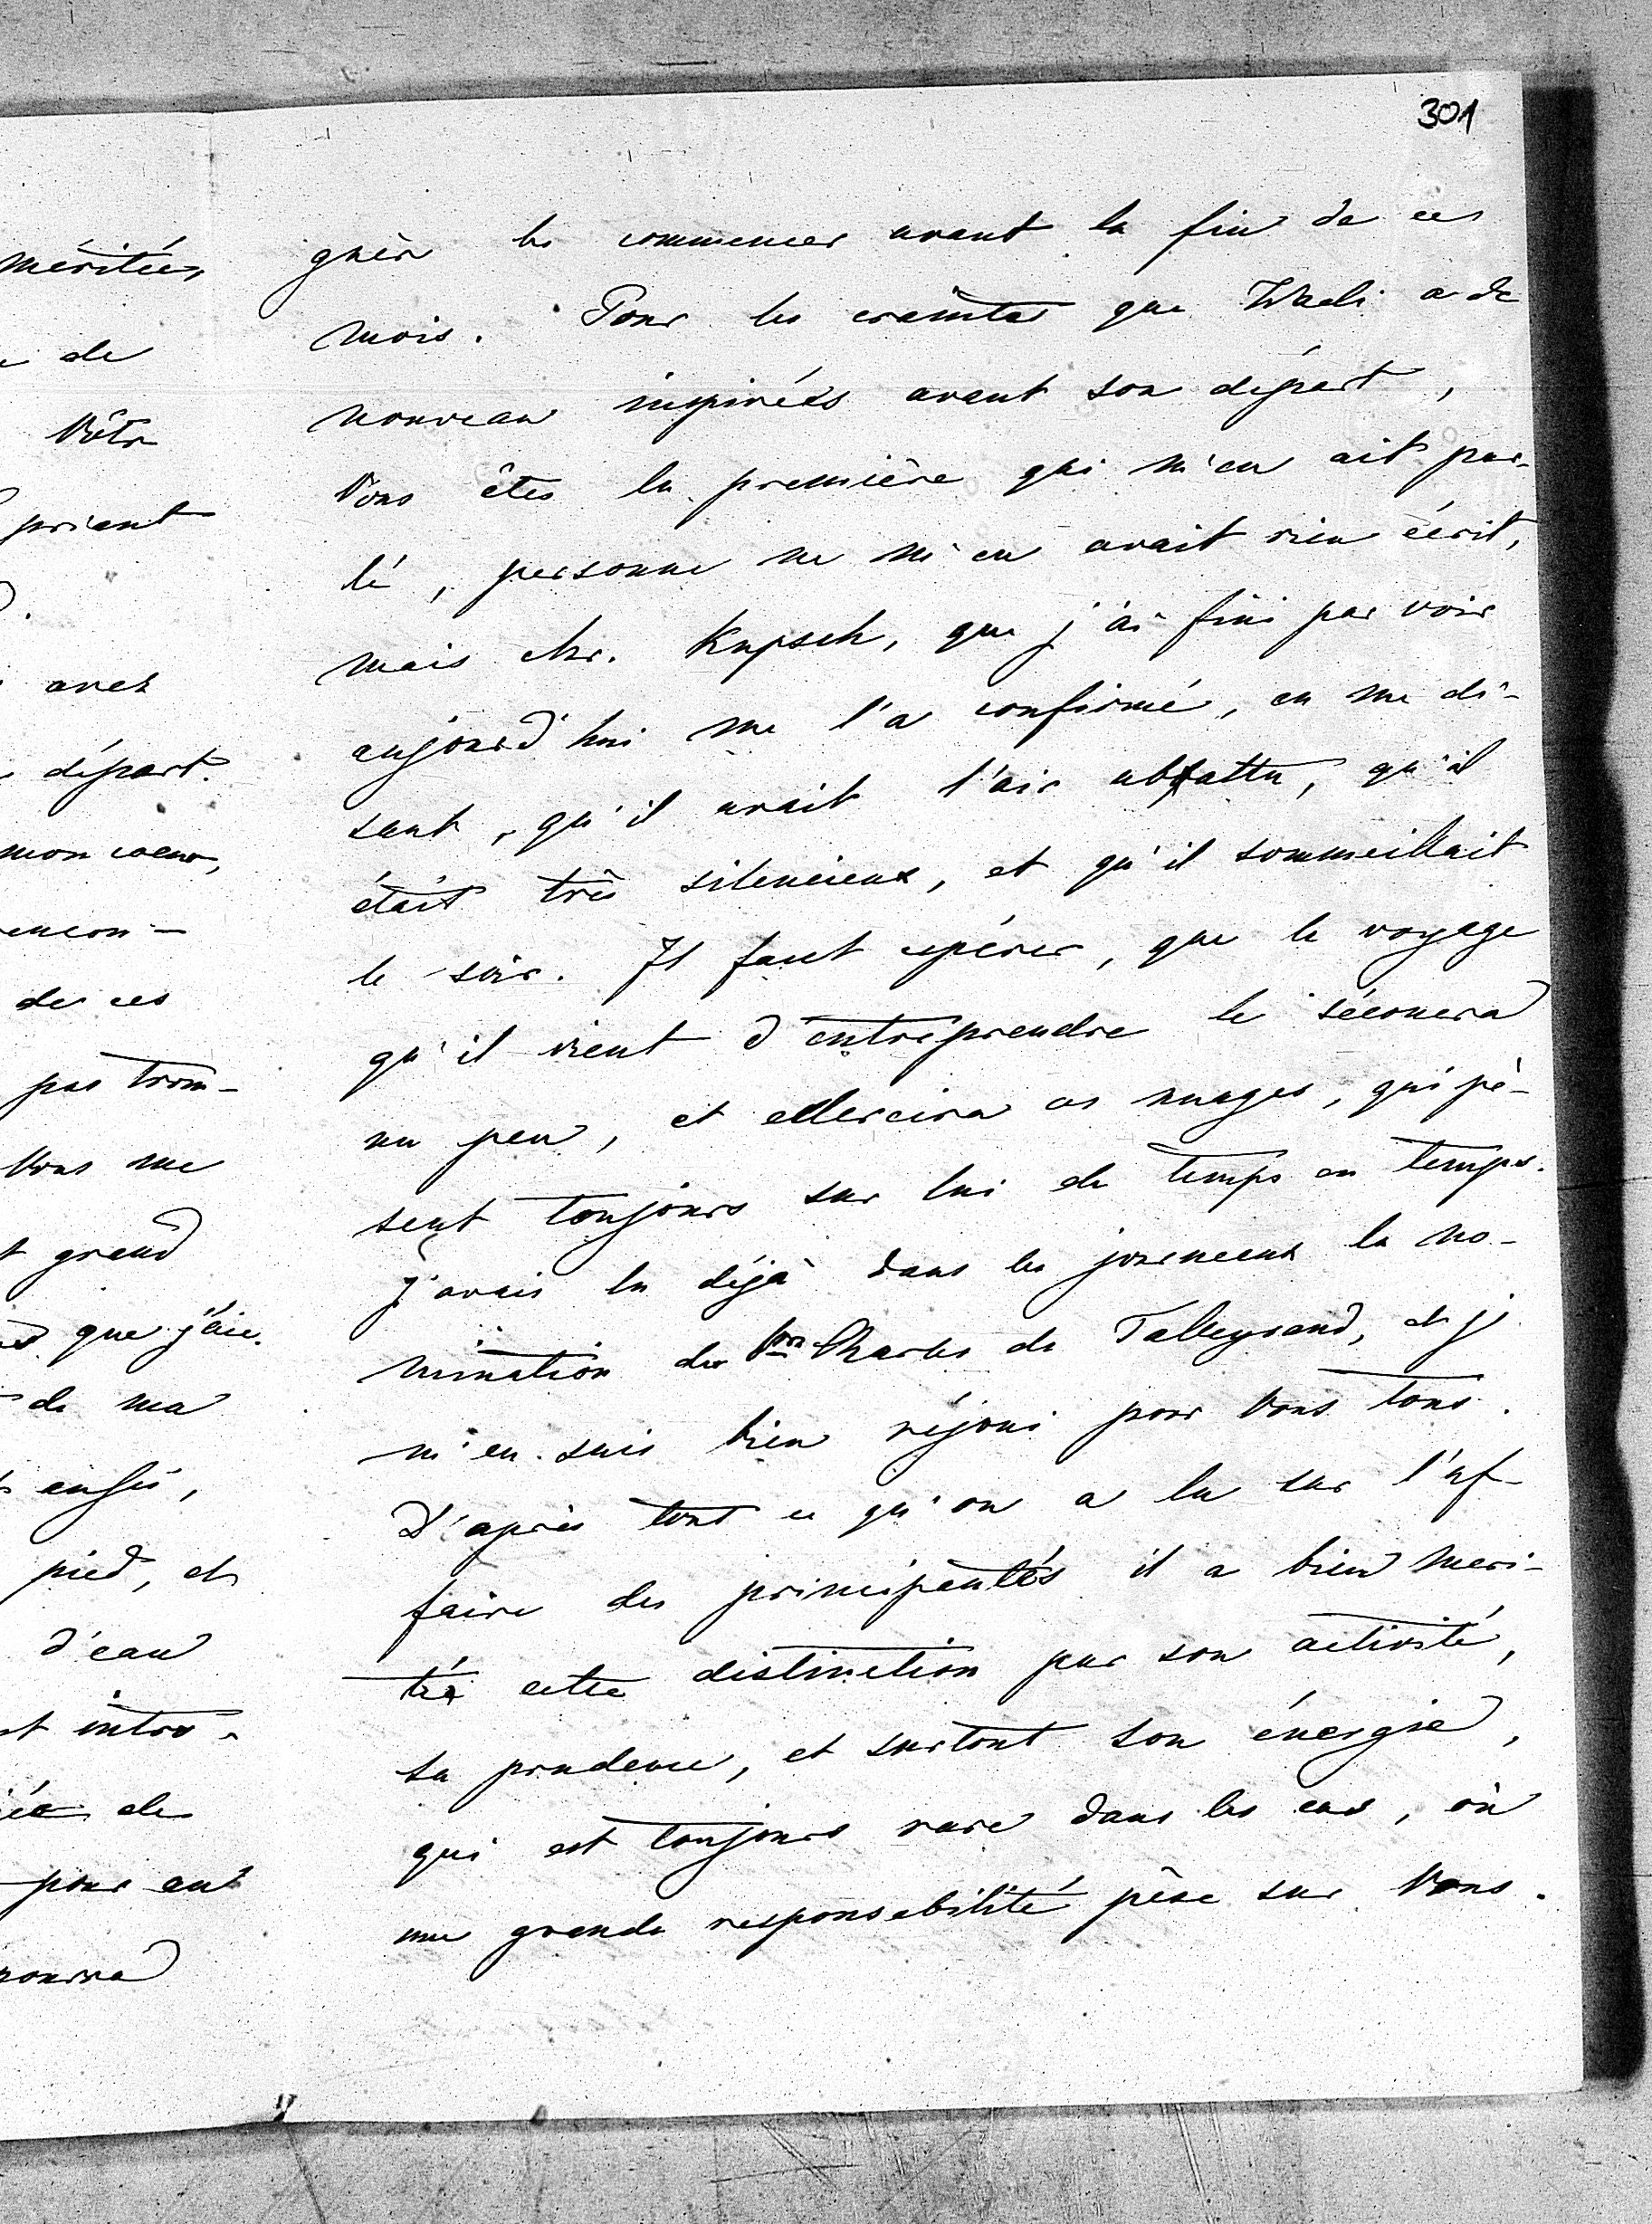 301
guère les commencer avant la fin de ces
mois. Pour les craintes que Wadi a de
nouveau inspirées avant son départ,
Vous êtes la première qui m'en ait par-
lé, personne ne m'en avait rien écrit,
mais Mr. Kupsch, que j'ai fini par voir
aujourd'hui me l'a confirmé, en me di-
sant, qu'il avait l'air abattu, qu'il
était très silencieux, et qu'il sommeillait
le soir. Il faut espérer, que le voyage
qu'il vient d'entreprendre le sécouera
un peu, et ces nuages, qui pè-
sent toujours sur lui de temps en temps.
J'avais lu déjà dans les journeaux la no-
mination de Charles de Talleyrand, et je
m'en suis bien réjoui pour Vous tous.
D'après tout ce qu'on a lu sur l'af-
faire des principautés il a bien meri-
té cette distinction par son activité,
sa prudence, et surtout son énergie,
qui est toujours rare dans les cas, où
une grande responsabilité pèse sur Vous.
méritées
de
Vôtr
priant
avez
départ.
mon coeur,
rencon-
de ces
pas trom-
Vous me
grand
que j'aie
de ma
enflé,
pied, et
d'eau
intro-
de
pour en
pourra